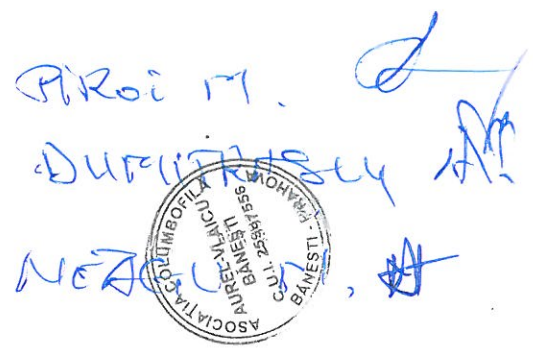 PIROI M.
DUMITRAȘCU
NEAGU
ASOCIAȚIA COLUMBOFILA
AUREL VLAICU
BĂNEȘTI
C.U.I.
BĂNEȘTI - PRAHOVA